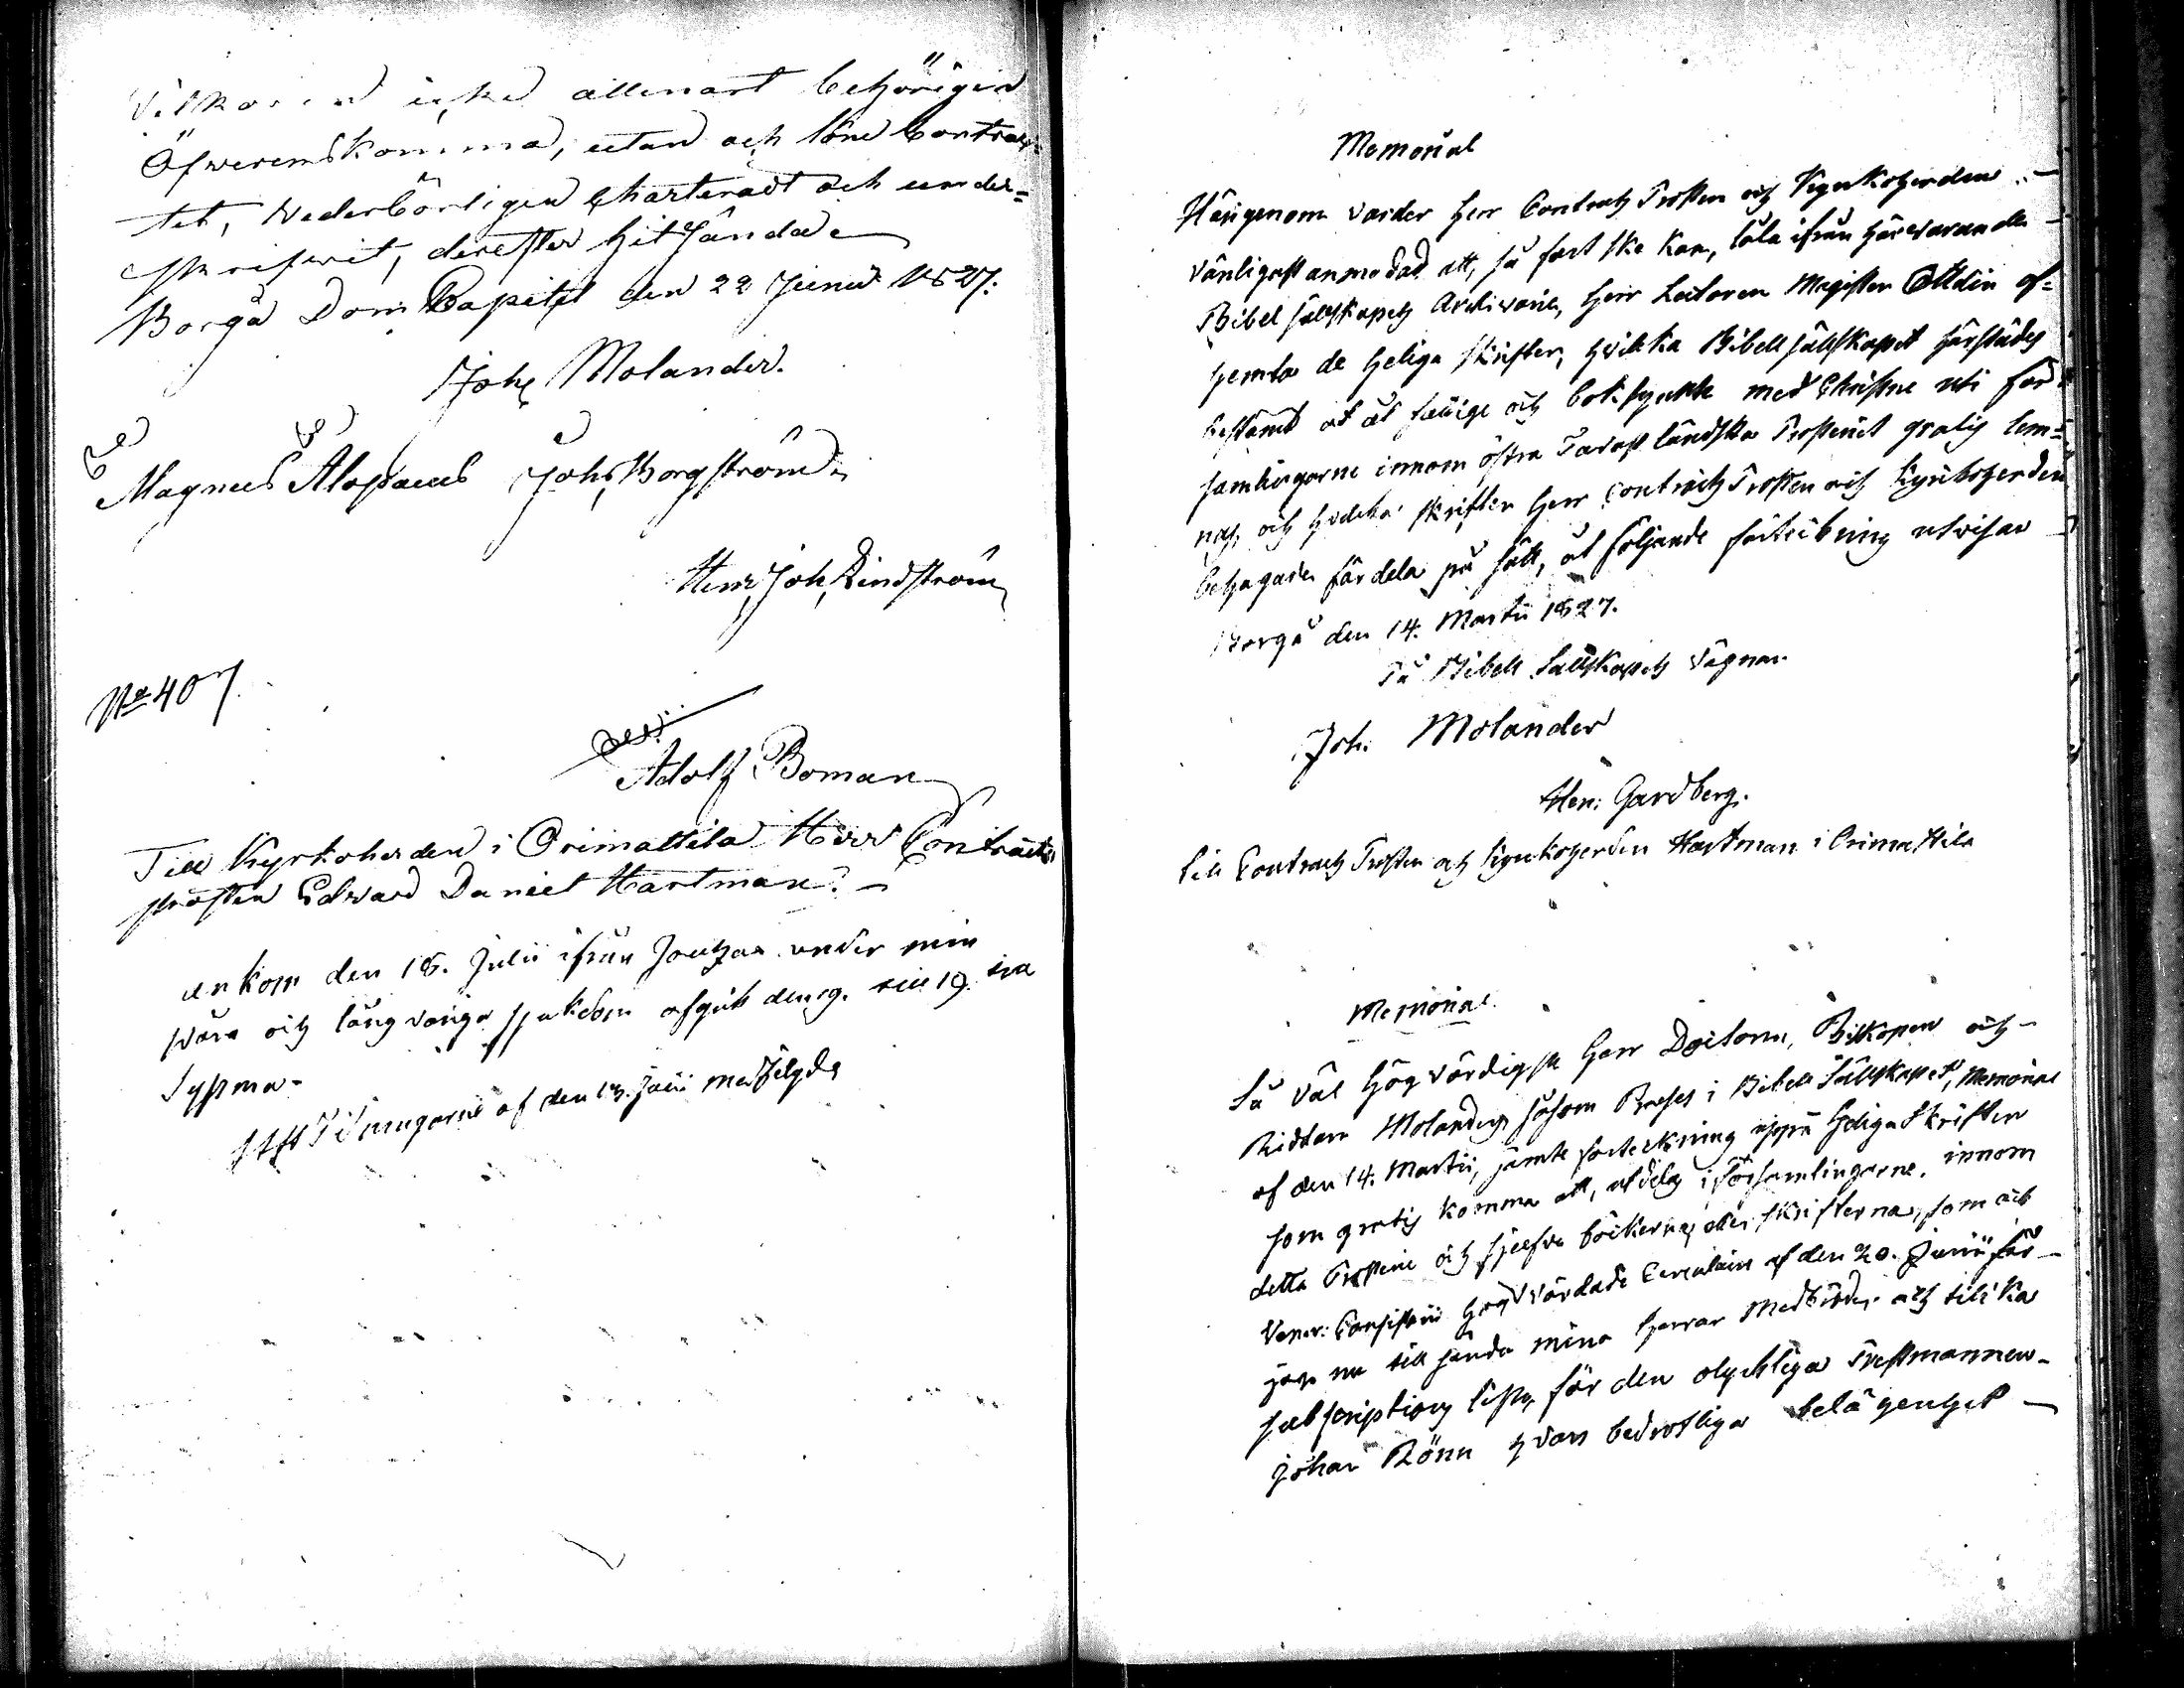 Vilkoren icke allenast behörigen
Öfwerenskomma, utan och låne Contrac-
tet, wederbörligen Charteradt och under-
skrifwit, derefter hitsända
Borgå Dom Capitel den 22 Junii 1827.
Joh: Molander.
Magnus Alopaeus Joh: Borgström
Henr: Joh: Lindström
No 407.
Adolf Boman
Till Kyrkoherden i Orimattila Herr Contracts
prosten Edvard Daniel Hartman.
ankom den 18. Julii ifrån Joutza under min
svåra och långvariga sjukdom afgick den 19. till
Sysma.
Stifts Tidningarne af den 13. Julii medfölgde
Memorial
Härigenom varder Herr Contracts Prosten och Kyrkoherden
vänligast anmodad att, så fort ske kan, låta ifrån härvarande
Bibel sällskapets Archivarie, Herr Lectoren Magister Ottelin af-
hemta de heliga Skrifter, hvilka Bibel sällskapet härstädes
bestämt at åt fattige och boksynte med Christne uti för-
samlingarne innom östra Tavastländska Prosteriet gratis lem-
nas, och hvilka skrifter Herr Contracts Prosten och Kyrkoherden
behagade fördela på sätt, åt följande förteckning utvisar
Borgå den 14. Martii 1827.
På Bibel Sällskapets vägnar
Joh: Molander
Hen: Gardberg.
till Contracts Prosten och Kyrkoherden Hartman i Orimattila
Memorial.
Så väl Högvördigste Herr Doctorn, Biskopen och
Riddaren Molanders såsom Preses i Bibel Sällskapet, Memorial
af den 14. Martii, jämte förteckning uppå Heliga Skrifter
som gratis komma att utdelas i Församlingarne innom
detta Prosteri och sjelfva böckerna eller skrifterna, som och
Vener: Consistorii Högvördade Circulaire af den 20. Junii får
jag nu till sända mina Herrar Medbröder och tillika
subscriptions lista, för den olyckliga Prestmannen
Johan Rönn hvars bedröfliga belägenhet